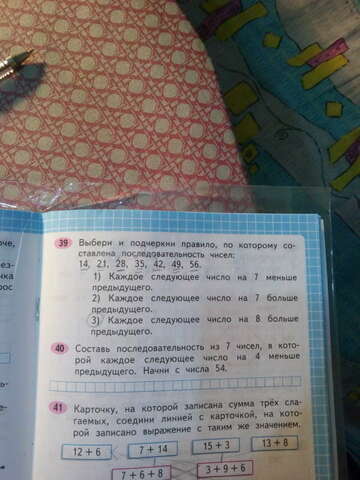 оче,
ез-
чка
рос
39 Выбери и подчеркни правило, по которому со-
ставлена последовательность чисел:
14, 21, 28, 35, 42, 49, 56.
1) Каждое следующее число на 7 меньше
предыдущего.
2) Каждое следующее число на 7 больше
предыдущего.
3) Каждое следующее число на 8 больше
предыдущего.
40 Составь последовательность из 7 чисел, в кото-
рой каждое следующее число на 4 меньше
предыдущего. Начни с числа 54.
41 Карточку, на которой записана сумма трёх сла-
гаемых, соедини линией с карточкой, на кото-
рой записано выражение с таким же значением.
12 + 6 7 + 14 15 + 3 13 + 8
7 + 6 + 8 3 + 9 + 6